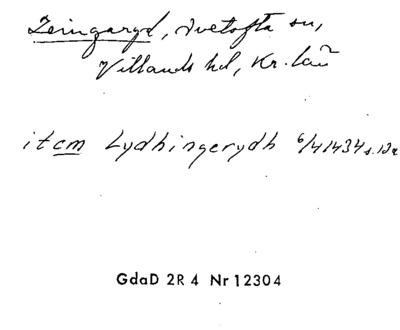 Leingaryd, Ivetofta sn,
Villands hd, Kr. län
item Lydhingerydh 6/4 1434 s. 12a
GdaD 2R 4 Nr 12304